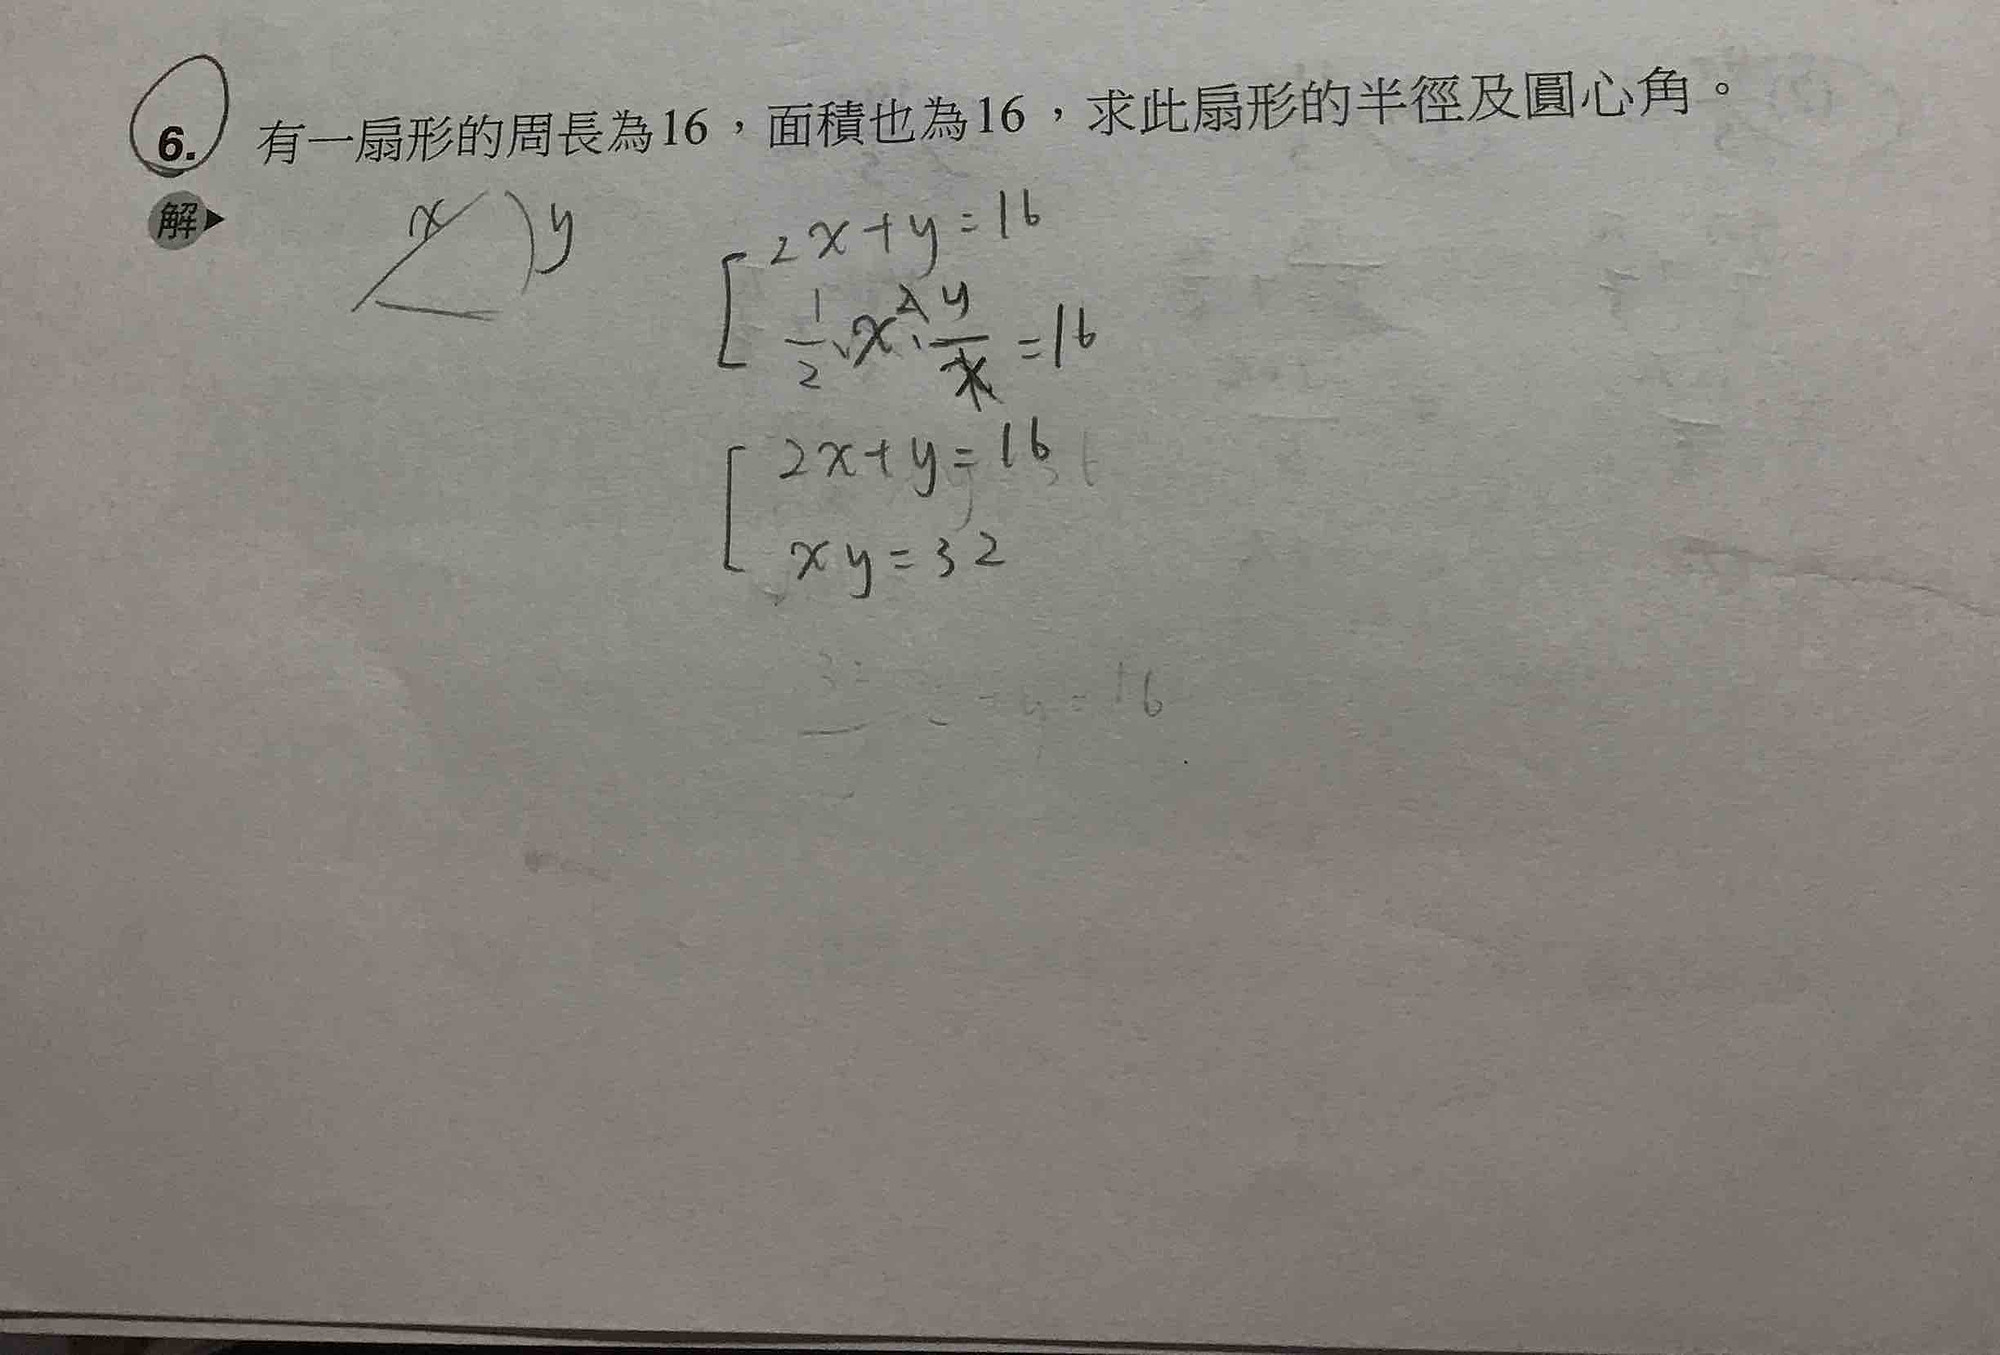 6. 有一扇形的周長為16，面積也為16，求此扇形的半徑及圓心角。
解
x y
2x+y=16
1/2·x²·y/x=16
2x+y=16
xy=32